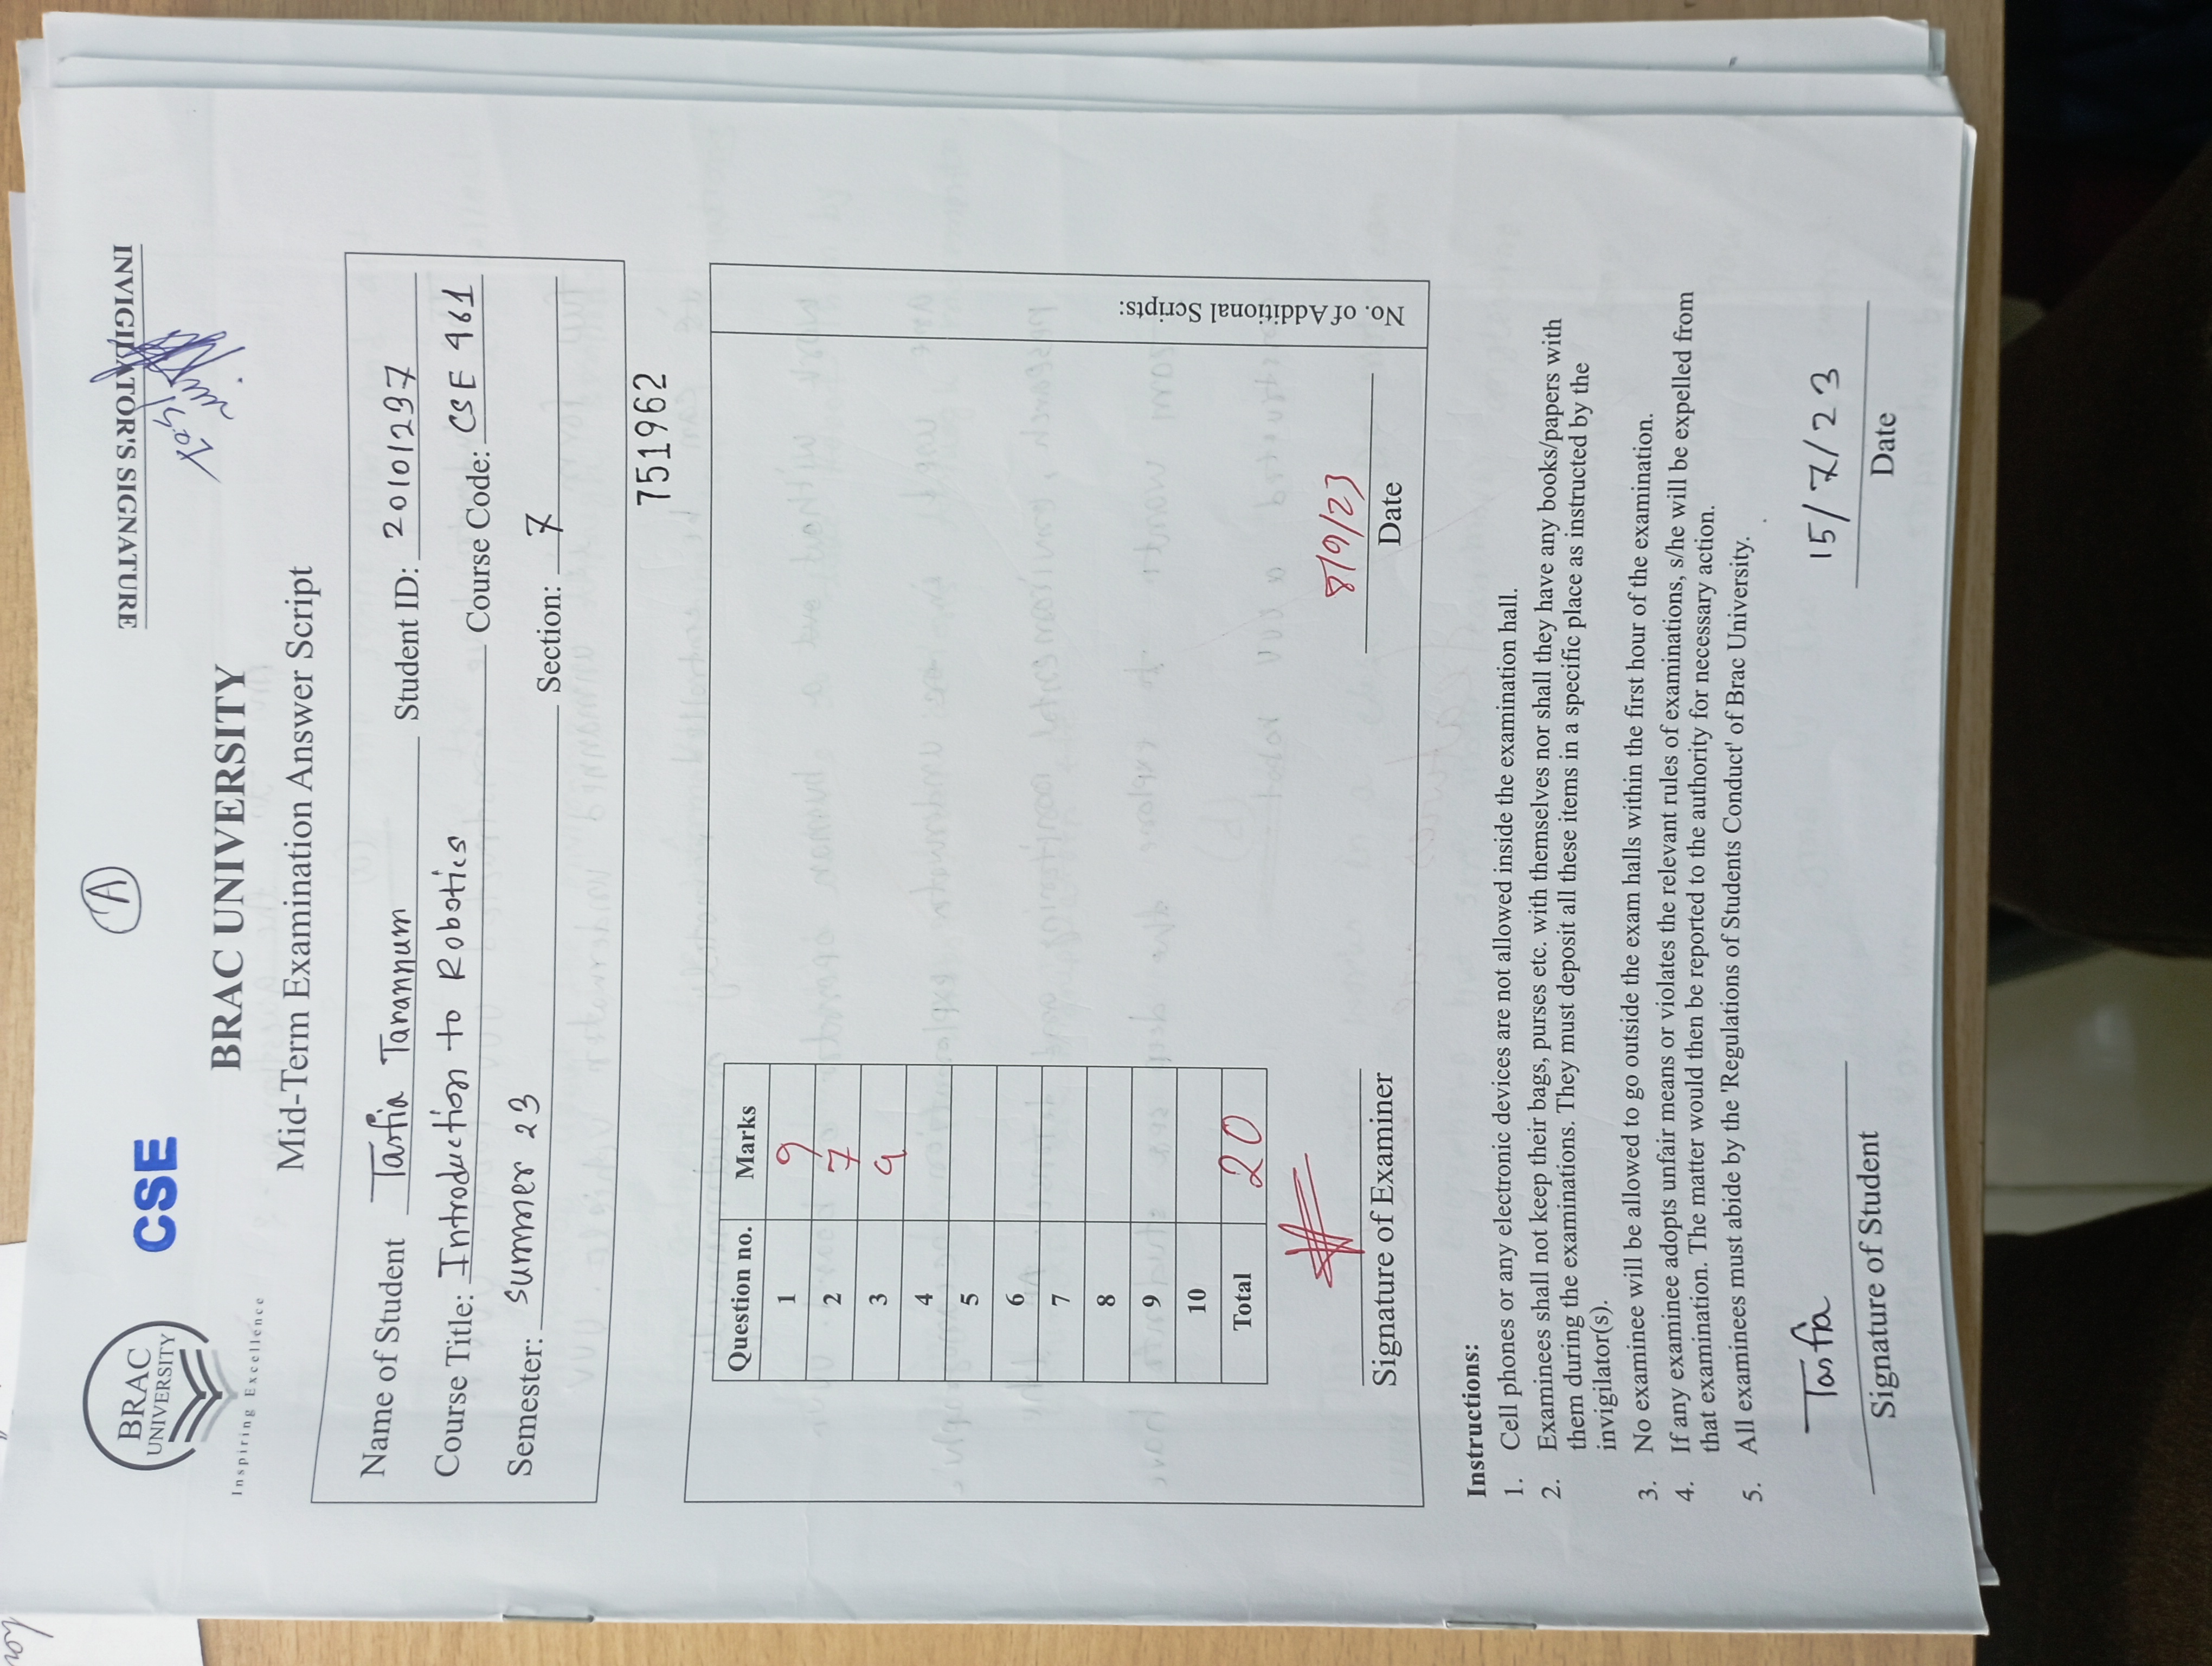 BRAC
UNIVERSITY
Inspiring Excellence
CSE
A
INVIGILATOR'S SIGNATURE
BRAC UNIVERSITY
Mid-Term Examination Answer Script
Name of Student Tasfia Tarannum Student ID: 20101237
Course Title: Introduction to Robotics Course Code: CSE 461
Semester: Summer 23 Section: 7
751962
Question no. Marks
1 9
2 7
3 9
4
5
6
7
8
9
10
Total 20
Signature of Examiner
8/9/23
Date
No. of Additional Scripts:
Instructions:
1. Cell phones or any electronic devices are not allowed inside the examination hall.
2. Examinees shall not keep their bags, purses etc. with themselves nor shall they have any books/papers with
them during the examinations. They must deposit all these items in a specific place as instructed by the
invigilator(s).
3. No examinee will be allowed to go outside the exam halls within the first hour of the examination.
4. If any examinee adopts unfair means or violates the relevant rules of examinations, s/he will be expelled from
that examination. The matter would then be reported to the authority for necessary action.
5. All examinees must abide by the 'Regulations of Students Conduct' of Brac University.
Tasfia
Signature of Student
15/7/23
Date